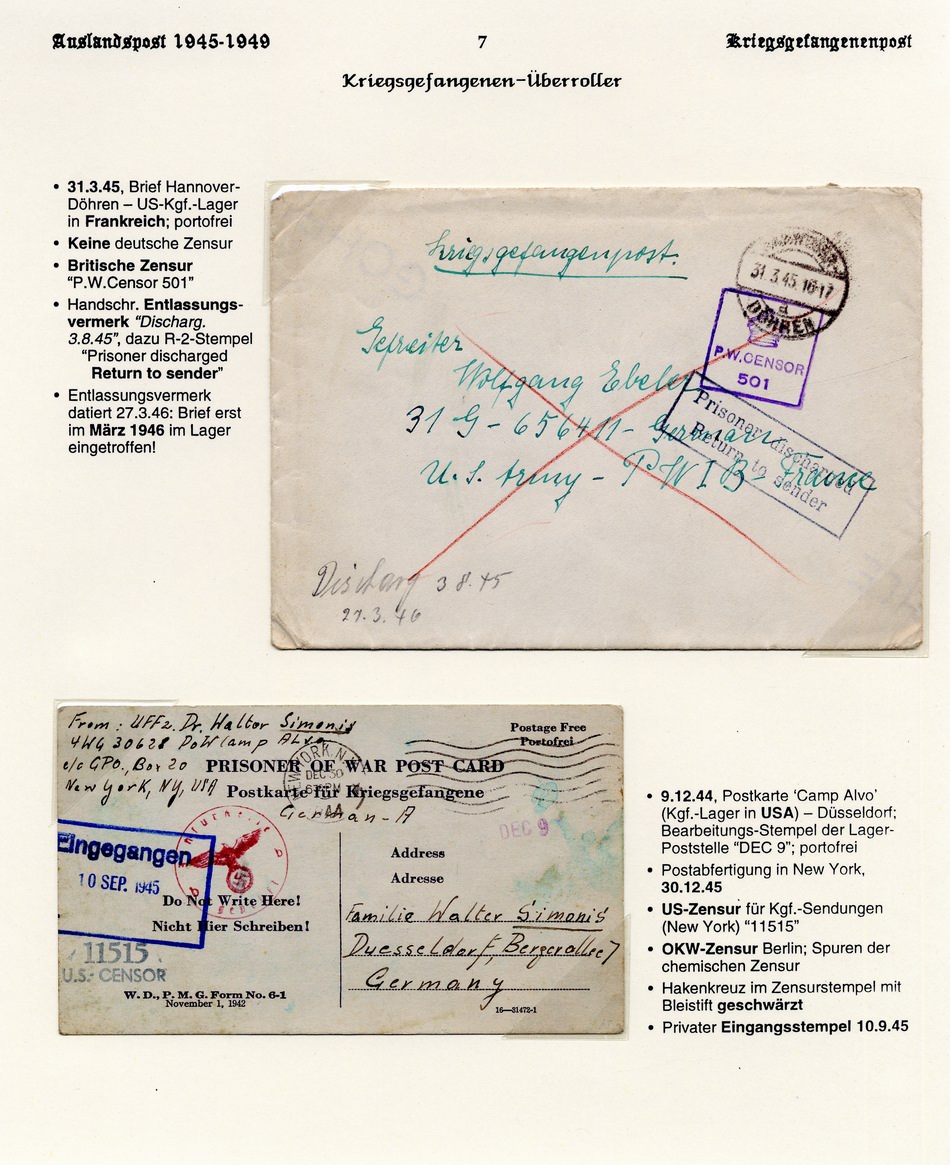 Auslandspost 1945-1949
7
Kriegsgefangenenpost
Kriegsgefangenen-Überroller
• 31.3.45, Brief Hannover-
Döhren – US-Kgf.-Lager
in Frankreich; portofrei
• Keine deutsche Zensur
• Britische Zensur
"P.W.Censor 501"
• Handschr. Entlassungs-
vermerk "Discharg.
3.8.45", dazu R-2-Stempel
"Prisoner discharged
Return to sender"
• Entlassungsvermerk
datiert 27.3.46: Brief erst
im März 1946 im Lager
eingetroffen!
Kriegsgefangenenpost.
31.3.45.16-17
a
DÖHREN
P.W.CENSOR
501
Gefreiter
Wolfgang Ebeler
31 G - 656411 - Germany
U.S. Army - PWIB France
Prisoner discharged
Return to sender
Discharg 3.8.45
27.3.46
From: UFFz. Dr. Walter Simonis
4WG 30628 PoW Camp Alva
c/o GPO., Box 20
New York, NY, USA
Postage Free
Portofrei
NEW YORK, N.Y.
DEC 30
PRISONER OF WAR POST CARD
Postkarte für Kriegsgefangene
German-A
DEC 9
Eingegangen
10 SEP. 1945
Address
Adresse
Do Not Write Here!
Nicht Hier Schreiben!
Familie Walter Simonis
Duesseldorf, Bergerallee 7
Germany
11515
U.S. CENSOR
W. D., P. M. G. Form No. 6-1
November 1, 1942
16—31472-1
• 9.12.44, Postkarte ‘Camp Alvo’
(Kgf.-Lager in USA) – Düsseldorf;
Bearbeitungs-Stempel der Lager-
Poststelle "DEC 9"; portofrei
• Postabfertigung in New York,
30.12.45
• US-Zensur für Kgf.-Sendungen
(New York) "11515"
• OKW-Zensur Berlin; Spuren der
chemischen Zensur
• Hakenkreuz im Zensurstempel mit
Bleistift geschwärzt
• Privater Eingangsstempel 10.9.45